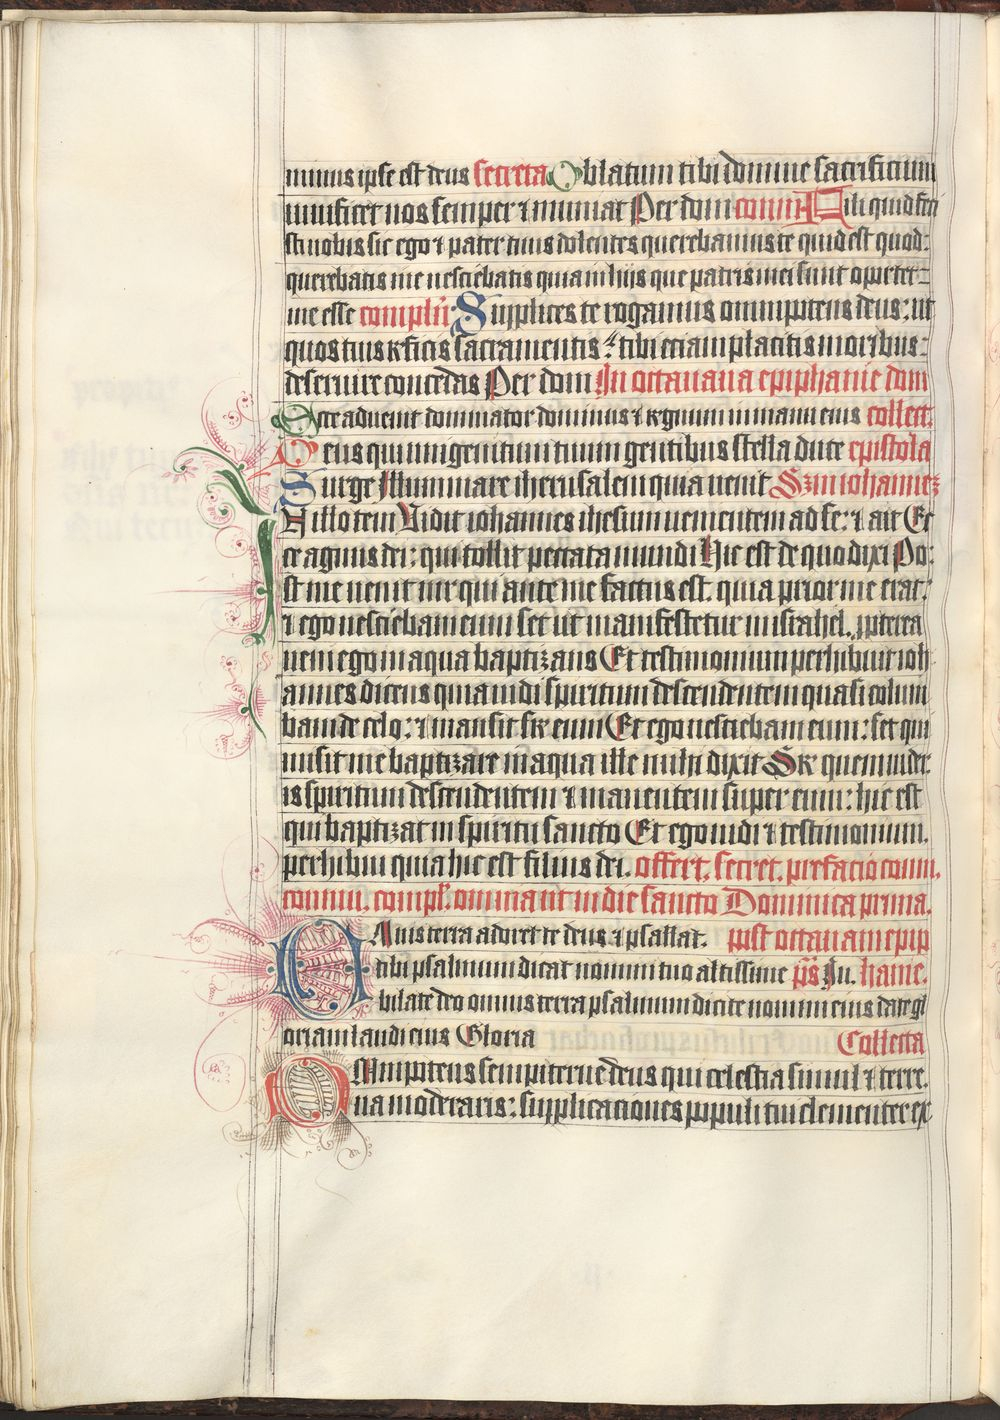 minus ipse est deus secreta Oblatum tibi domine sacrificium
uiuificet nos semper ⁊ muniat Per dom comm Fili quid feci
sti nobis sic ego ⁊ pater tuus dolentes querebamus te quid est quod
querebatis me nesciebatis quia in hijs que patris mei sunt oportet
me esse complen Supplices te rogamus omnipotens deus: ut
quos tuis reficis sacramentis: tibi eciam placitis moribus
deseruire concedas Per dom In octauaua epiphanie dom
Ecce aduenit dominator dominus ⁊ regnum in manu eius collect.
Deus qui unigenitum tuum gentibus stella duce epistola
Surge Illuminare iherusalem quia uenit Scdm iohannez
In illo tem Vidit iohannes ihesum uenientem ad se: ⁊ ait Ec
ce agnus dei: qui tollit peccata mundi Hic est de quo dixi Po
st me uenit uir qui ante me factus est. quia prior me erat:
⁊ ego nesciebam eum set ut manifestetur in israhel. ꝓpterea
ueni ego in aqua baptizans Et testimonium perhibuit ioh
annes dicens quia uidi spiritum descendentem quasi colum
bam de celo: ⁊ mansit sr eum Et ego nesciebam eum: set qui
misit me baptizare in aqua ille mihi dixit Sr quem uider
is spiritum descendentem ⁊ manentem super eum: hic est
qui baptizat in spiritu sancto Et ego uidi ⁊ testimonium.
perhibui quia hic est filius dei. offert. secret. prefacio comm.
comm. compl. omnia ut in die sancto Dominica prima.
Omnis terra adoret te deus ⁊ psallat. post octauam epip
tibi psalmum dicat nomini tuo altissime ps Iu. hanie.
bilate deo omnis terra psalmum dicite nomini eius date gl
oriam laudi eius Gloria Collecta
Omnipotens sempiterne deus qui celestia simul ⁊ terre.
na moderaris: supplicaciones populi tui clementer ex